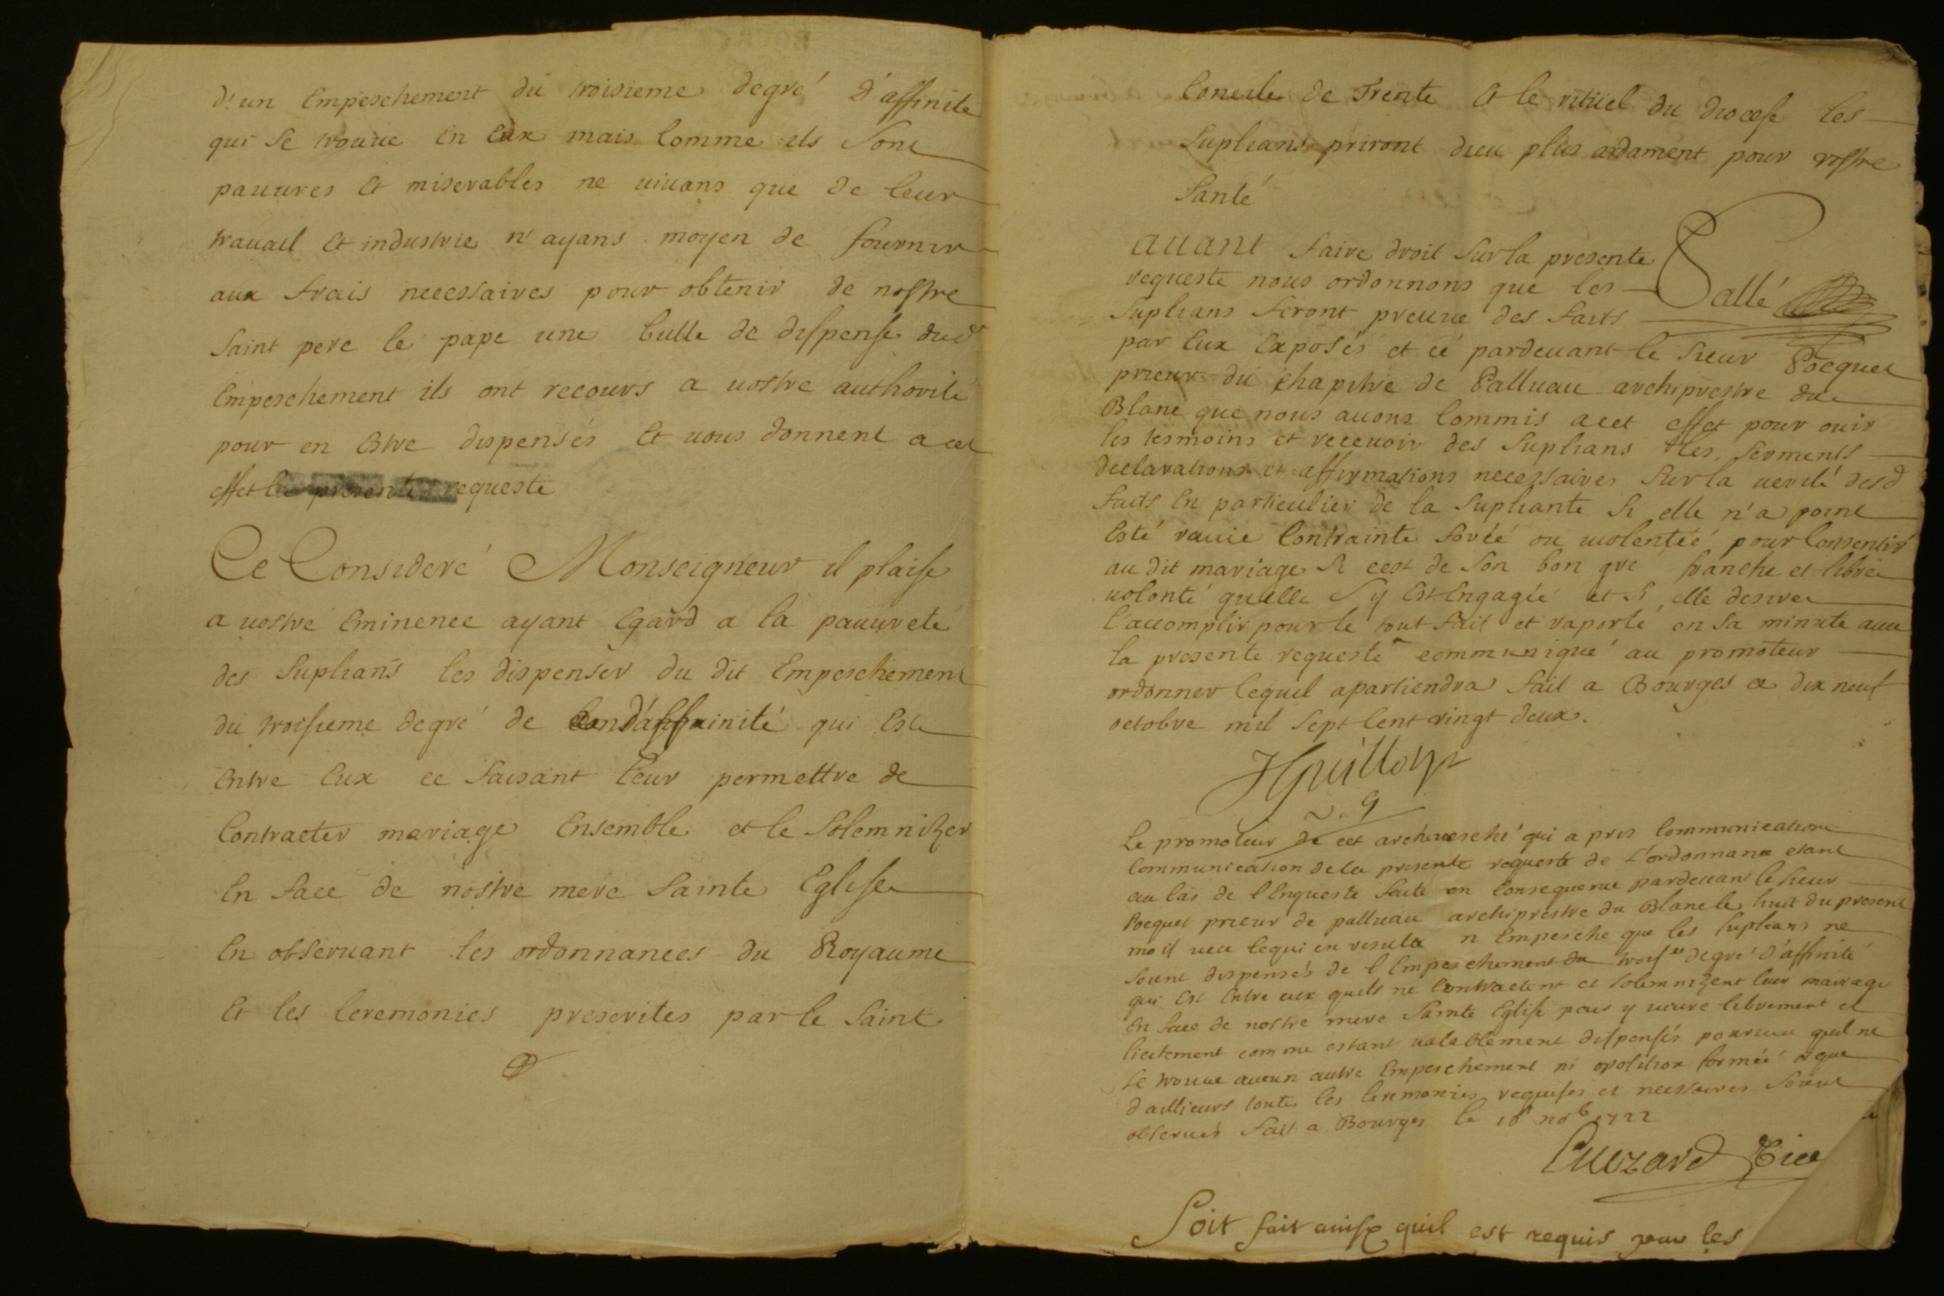 d'un Empeschement du troisieme degré d'affinite
qui se trouue En Eux mais Comme ils Sont
pauures Et miserables ne uiuans que de leur
trauail Et industrie n'ayans moyen de fournir
aux frais necessaires pour obtenir de nostre
Saint pere le pape une bulle de dispense dud
Empeschement ils ont recours a uostre authorité
pour en Estre dispensés Et uous donnent a cet
effet la presente requeste
Ce Consideré Monseigneur il plaise
a uostre Eminence ayant Egard a la pauureté
des Suplians les dispenser du dit Empeschement
du troisieme degré de d'affinité qui Est
Entre Eux ce faisant leur permettre de
Contracter mariage Ensemble et le Solemnizer
En face de nostre mere Sainte Eglise
En obseruant les ordonnances du Royaume
Et les Ceremonies prescrites par le Saint
Concile de Trente Et le rituel du diocese les
Suplians priront dieu plus ardament pour vostre
Santé
Pallé
auant faire droit Sur la presente
requeste nous ordonnons que les
Suplians feront preuue des faits
par Eux Exposés et ce pardeuant le Sieur Pocquet
prieur du chapitre de Palluau archiprestre du
Blanc que nous auons Commis a cet effet pour ouir
les tesmoins et receuoir des Suplians les Serments
declarations et affirmations necessaires Sur la uerité desd
faits En particulier de la Supliante Si elle n'a point
Esté rauie Contrainte forcée ou uiolentée pour Consentir
au dit mariage Si c'est de Son bon gre franche et libre
uolonté qu'elle S'y Est Engagée et Si elle desire
l'accomplir pour le tout fait et raporté en Sa minute auec
la presente requeste communiqué au promoteur
ordonner Cequil apartiendra fait a Bourges ce dix neuf
octobre mil Sept Cent vingt deux.
v. g
Le promoteur de cet archeuesché qui a pris Communication
Communication de la presente requeste de L'ordonnance estant
au bas de l'Enqueste faite en Consequence pardeuant le Sieur
Pocquet prieur de palluau archiprestre du Blanc le huit du present
mois ueu Cequi en resulte n'Empesche que les Suplians ne
Soient dispensés de l'Empeschement du trois.e degré d'affinité
qui Est Entre eux quils ne Contractent et Solemnizent leur mariage
En face de nostre mere Sainte Eglise pour y uiure librement et
licitement comme estant ualablement dispensés pourueu quil ne
Se trouue aucun autre Empeschement ni oposition formée et que
d'ailleurs toutes les Ceremonies requises et necessaires Soient
obserués fait a Bourges le 16 nob 1722
Soit fait ainsy quil est requis pour les